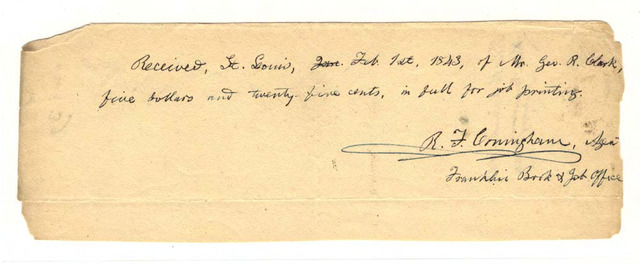 Received, St. Louis, Feb. 1st, 1843, of Mr. Geo. R. Clark,
five dollars and twenty-five cents, in full for job printing.
R. F. Cuningham,
Franklin Book & Job Office